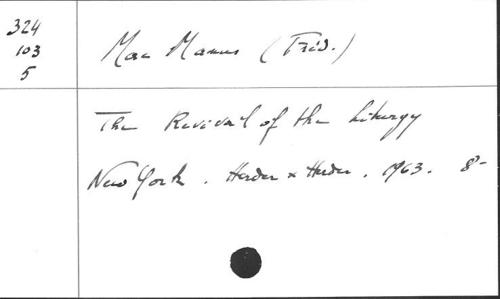 324
103
5
Mac Manus (Fréd.)
The Revival of the Liturgy
New York. Herder & Herder. 1963. 8-